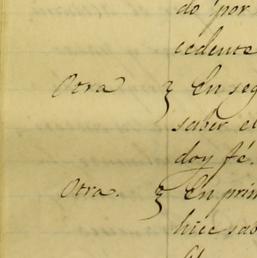 do por
cedente
Otra } En seg
saber el
doy fé.
Otra. } En prim
hice sab